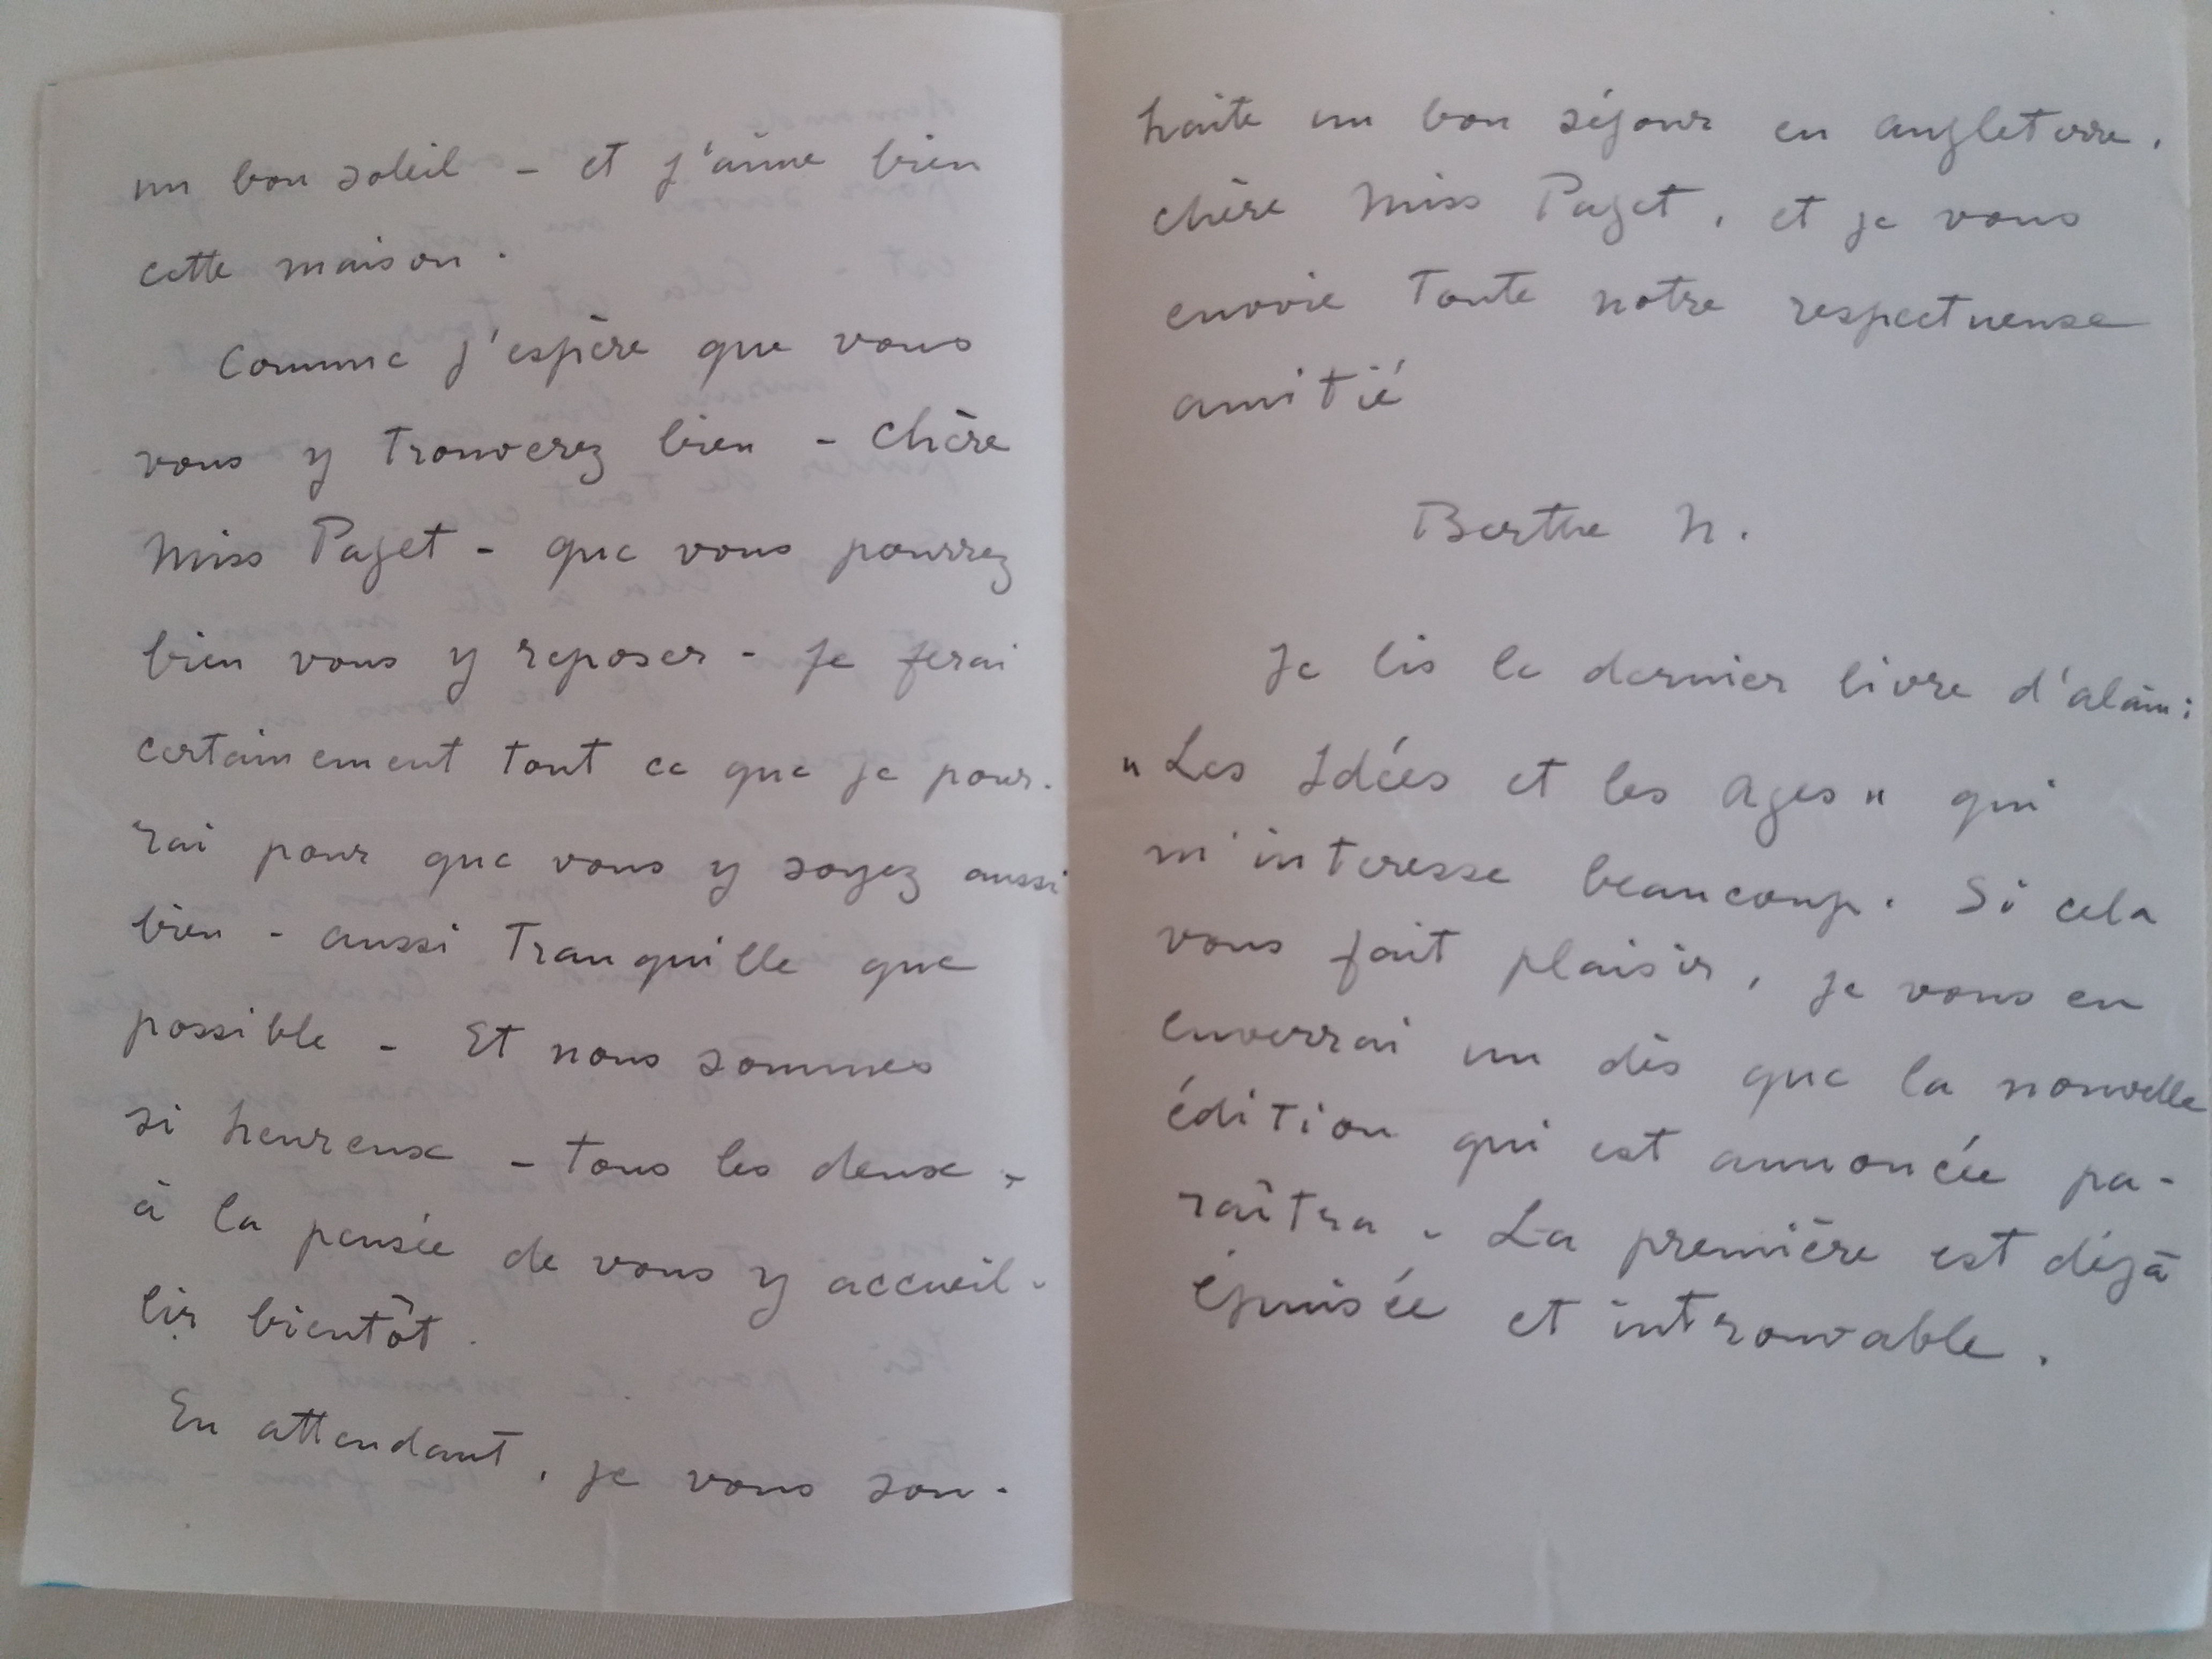 un bon soleil - et j'aime bien
cette maison.
Comme j'espère que vous
vous y trouverez bien - Chère
Miss Paget - que vous pourrez
bien vous y reposer - Je ferai
certainement tout ce que je pour-
rai pour que vous y soyez aussi
bien - aussi tranquille que
possible - Et nous sommes
si heureux - tous les deux -
à la pensée de vous y accueil-
lir bientôt.
En attendant, je vous sou-
haite un bon séjour en angleterre,
chère Miss Paget, et je vous
envoie toute notre respectueuse
amitié
Berthe N.
Je lis le dernier livre d'alain :
"Les Idées et les ages" qui
m'interesse beaucoup. Si cela
vous fait plaisir, je vous en
enverrai un dès que la nouvelle
édition qui est annoncée pa-
raîtra. La première est déjà
épuisée et introuvable.